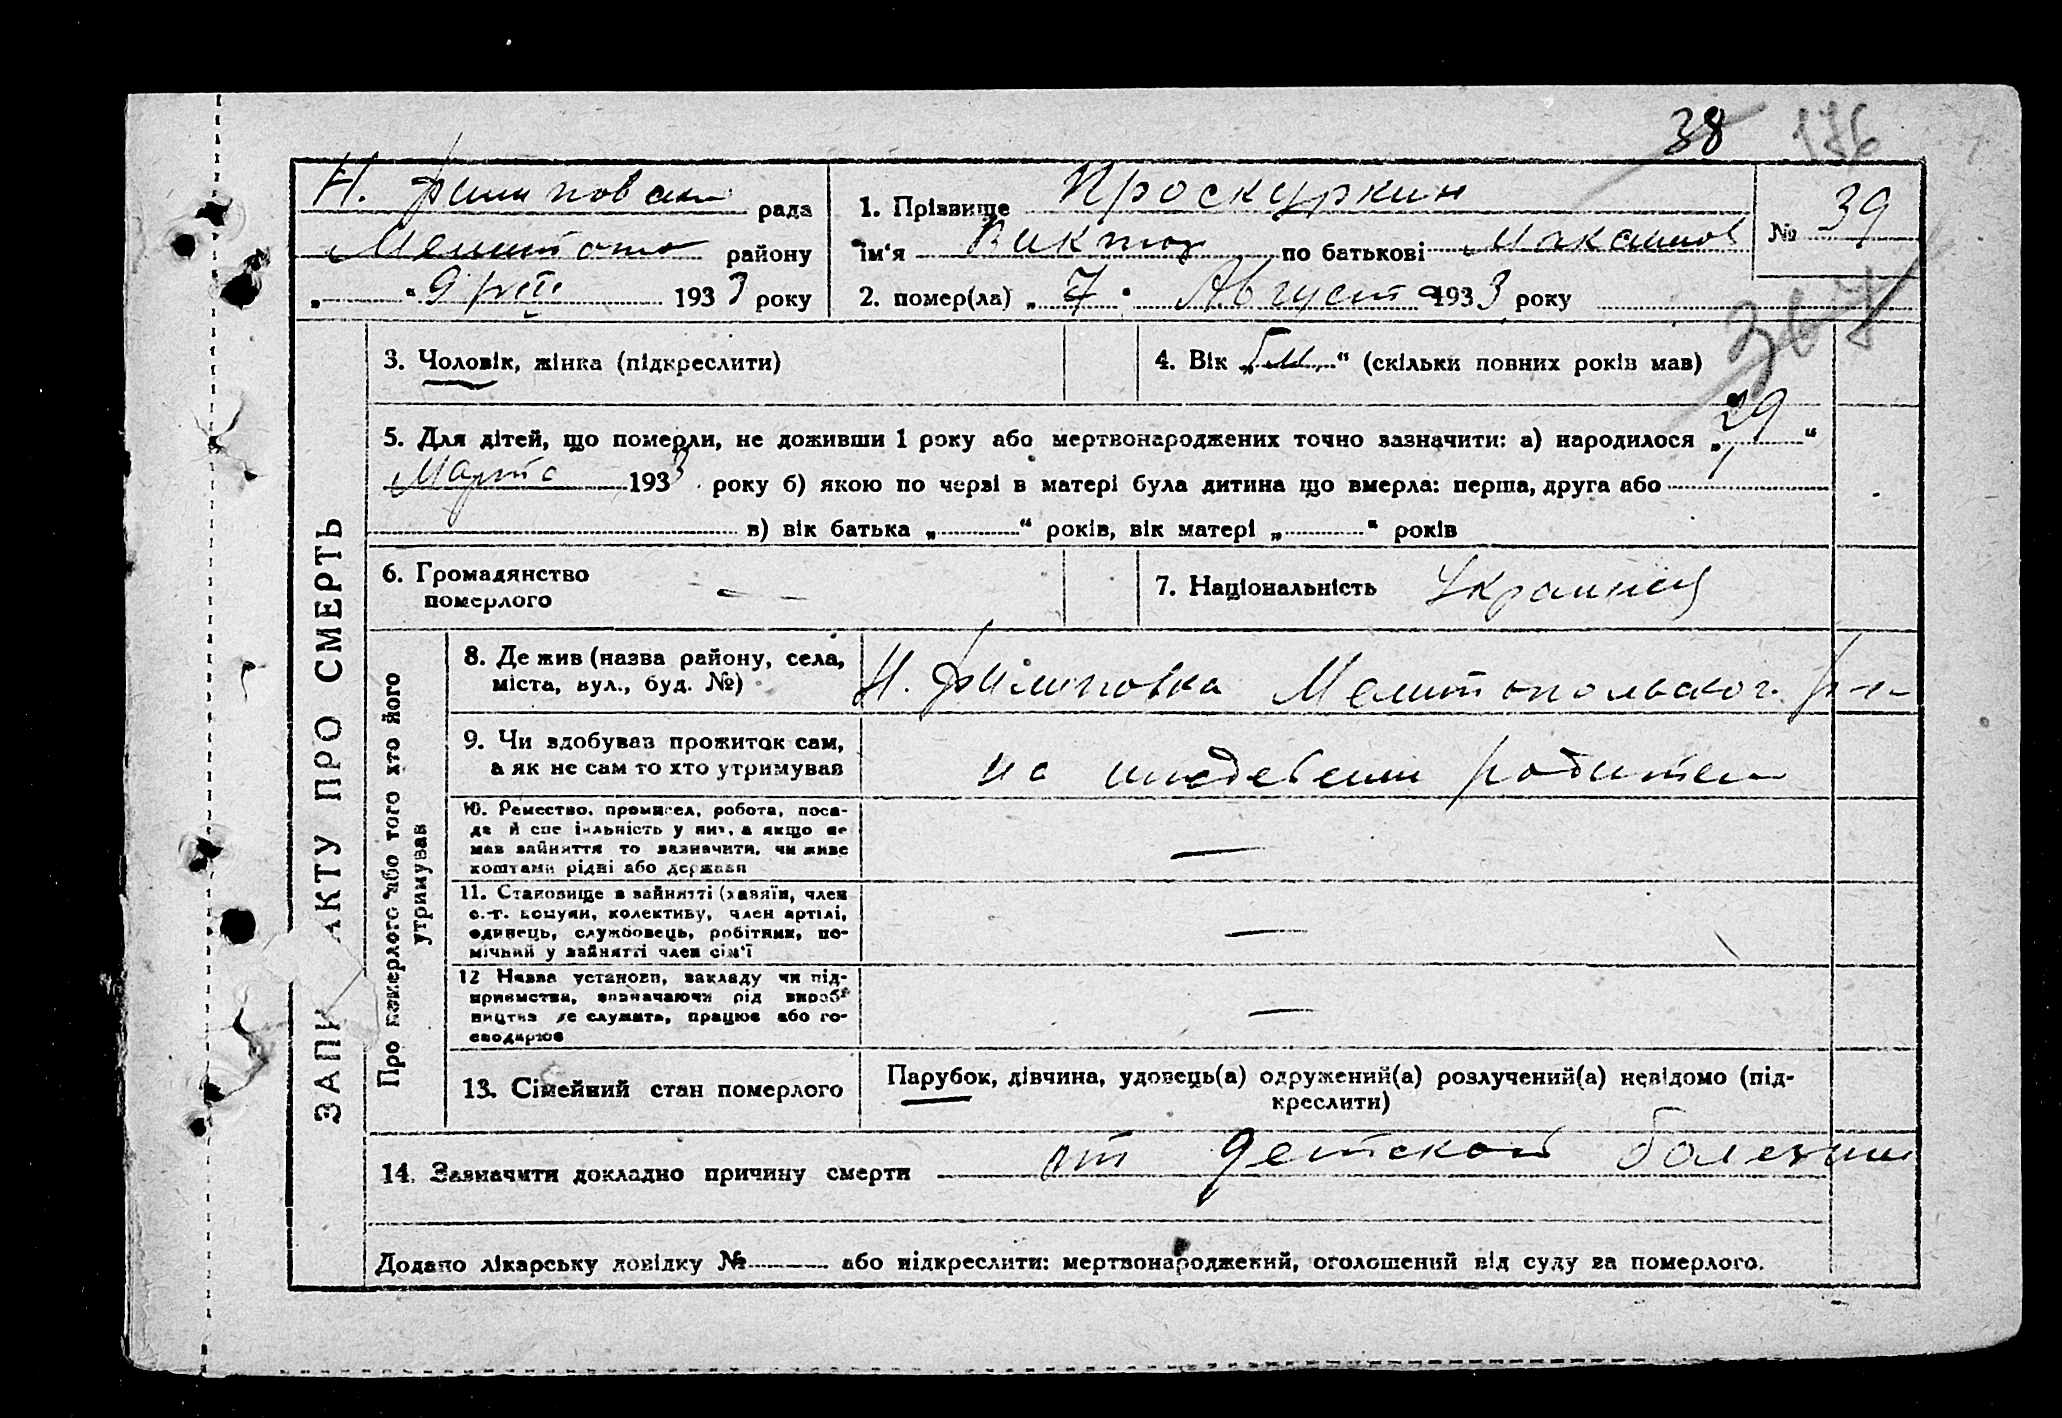 38 176
Н. Филиповск рада
Мелитопо району
„ “ 193 3 року
1. Прізвище Проскуркин
ім'я Виктор по батькові Максимов
2. помер(ла) „ 7 “ Августа 193 3 року
№ 39
367
ЗАПИ АКТУ ПРО СМЕРТЬ
3. Чоловік, жінка (підкреслити)
4. Вік „ м “ (скільки повних років мав)
5. Для дітей, що померли, не доживши 1 року або мертвонароджених точно зазначити: а) народилося „ 29 “
Марта 193 3 року б) якою по черзі в матері була дитина що вмерла: перша, друга або
в) вік батька „ “ років, вік матері „ “ років
6. Громадянство
померлого —
7. Національність Украинец
Про померлого або того хто його
утримував
8. Де жив (назва району, села,
міста, вул., буд. №)
Н. Филиповка Мелитопольског. р-н
9. Чи здобував прожиток сам,
а як не сам то хто утримував
на иждевении родители
10. Ремество, промисел, робота, поса-
да й спе іяльність у них, а якщо не
мав зайняття то зазначити, чи живе
коштами рідні або держави
—
11. Становище в зайнятті (хазяїн, член
с.-г. комуни, колективу, член артілі,
одинець, службовець, робітник, по-
мічний у зайнятті член сім'ї
—
12 Назва установи, закладу чи під-
приємства, зазначаючи рід вироб-
ництва де служить, працює або го-
сподарює
—
13. Сімейний стан померлого
Парубок, дівчина, удовець(а) одружений(а) розлучений(а) невідомо (під-
креслити)
14. Зазначити докладно причину смерти от детской болезни
Додано лікарську довідку № або підкреслити: мертвонароджений, оголошений від суду за померлого.